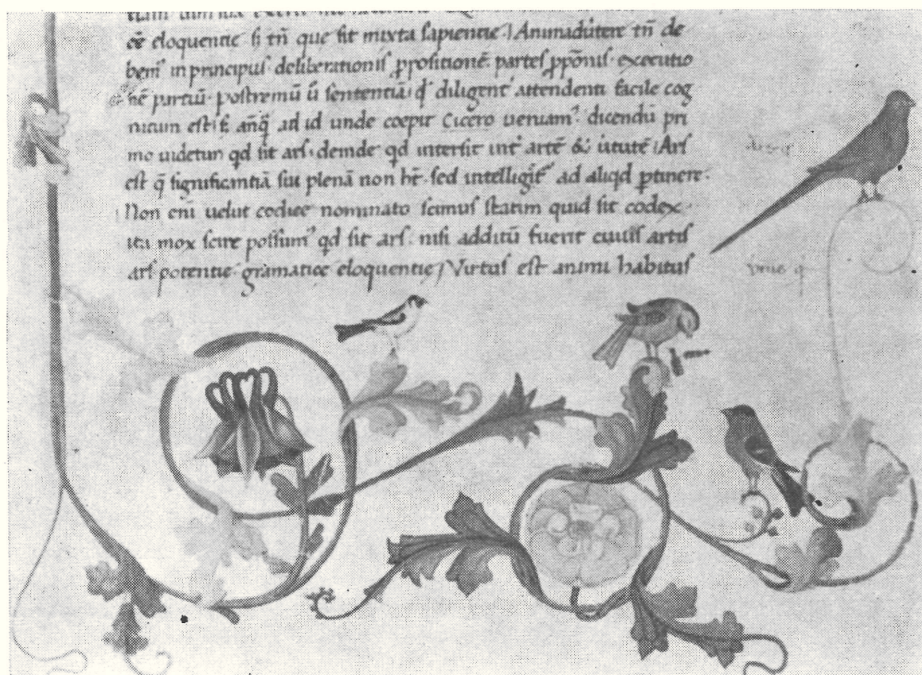 eē eloquentie si tn̄ que sit mixta sapientie / Animaduꝰtere tn̄ de
bemꝰ in principiis deliberationis ꝓpositionē partes ꝓpōnis executio
nē partiū postremū ū sententiā qd̄ diligent᷑ attendenti facile cog
nitum est s; añq̄ ad id unde coepit Cicero ueniamꝰ dicendū pri
mo uidetur qd sit ars deinde qd intersit int᷑ artē & uꝰtutē / Ars
est q̄ significantiā sui plenā non ht̄ sed intelligit᷑ ad aliqd ꝑtinere
Non eni uelut codice nominato scimus statim quid sit codex
ita mox scire possumꝰ qd sit ars nisi additū fuerit cuius artis
ars potentie grāmatice eloquentie / Virtus est animi habitus